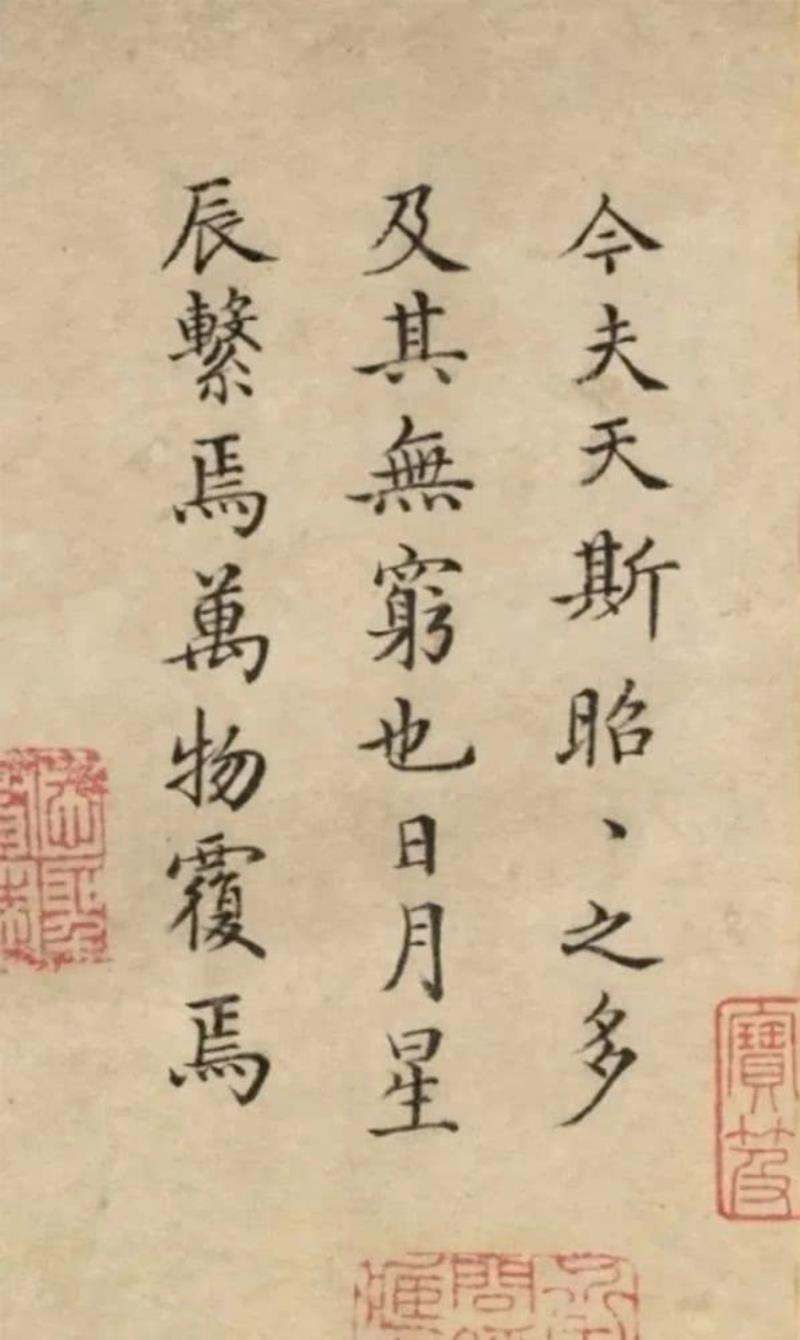 今夫天斯昭、之多
及其無窮也日月星
辰繫焉萬物覆焉
寶笈